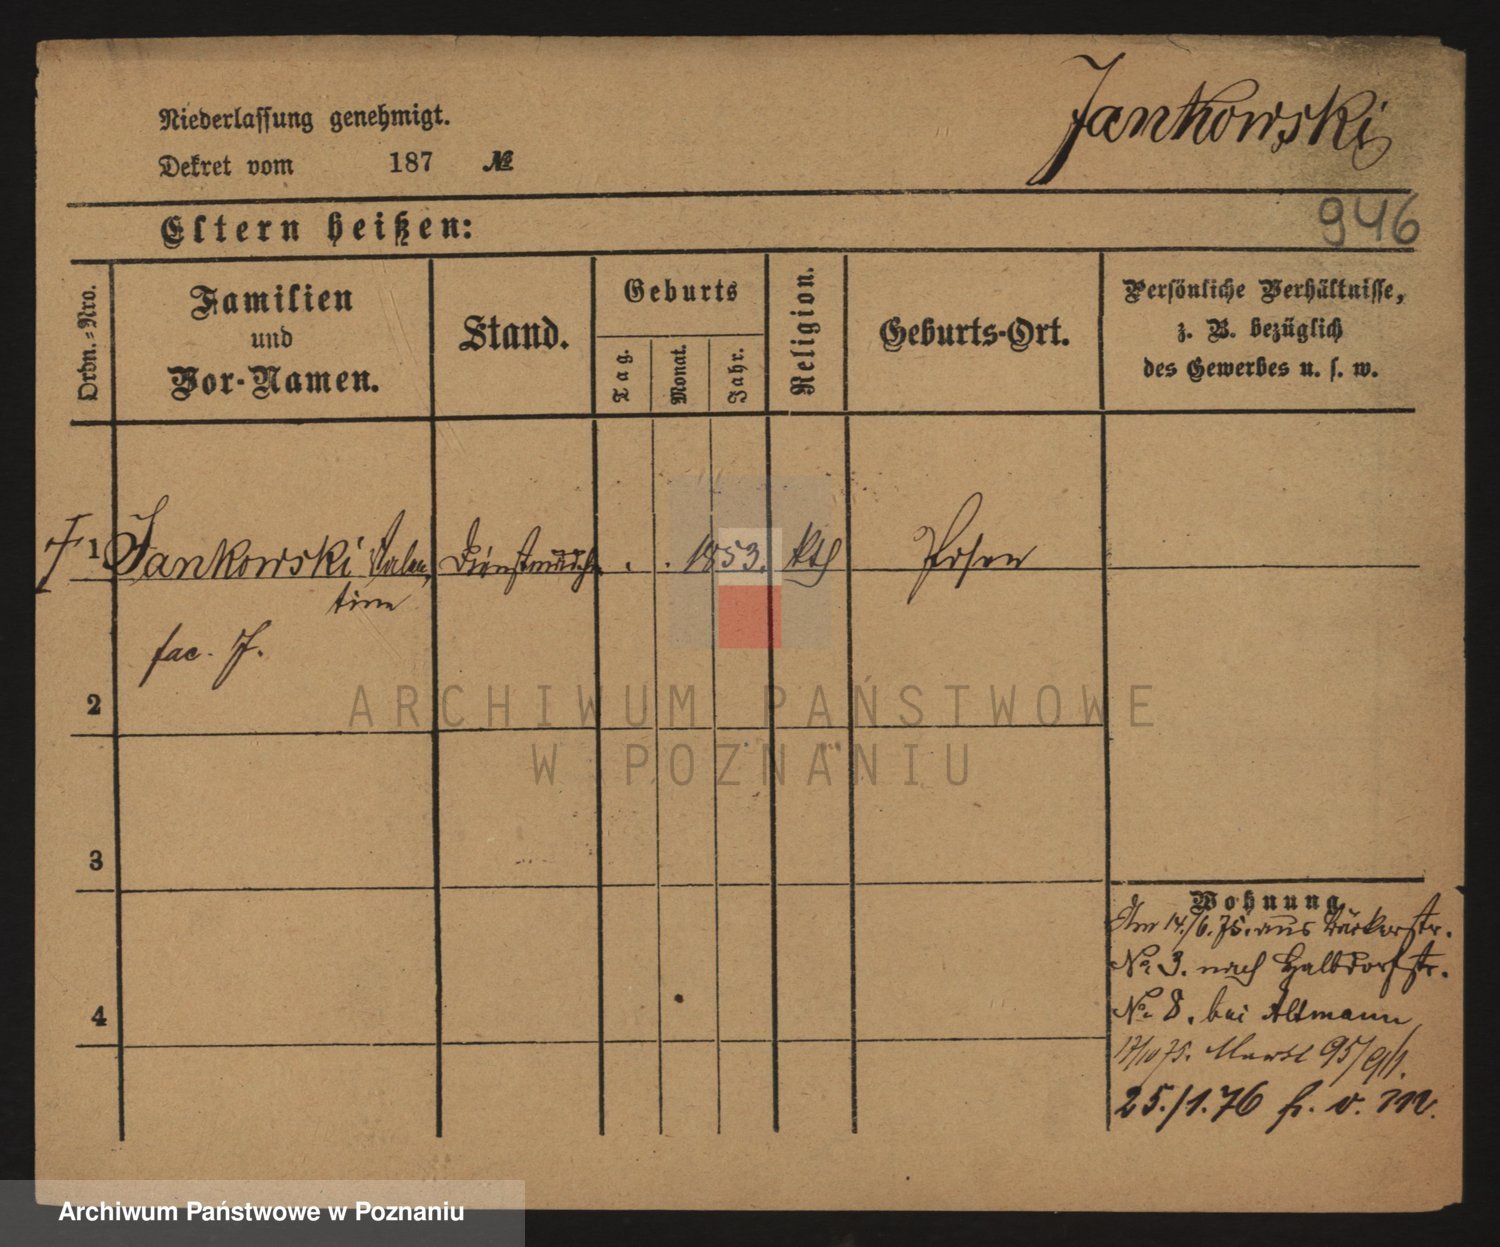 Jankowski
Niederlassung genehmigt.
Dekret vom 187 №
946
Eltern heißen:
Ordn.-Nro.
Familien
und
Vor-Namen.
Stand.
Geburts
Tag.
Monat.
Jahr.
Religion.
Geburts-Ort.
Persönliche Verhältnisse,
z. B. bezüglich
des Gewerbes u. s. w.
1 Jankowski Valen- Dienstmädch. . . 1853. kth Posen
tine
fac. J.
2
ARCHIWUM PAŃSTWOWE
W POZNANIU
3
Wohnung
Am 14./6.75. aus Bäckerstr.
№ 3. nach Halbdorfstr.
4
№ 8. bei Altmann
17/10 75. Markt 95/91.
25./1.76 fr. v. M.
Archiwum Państwowe w Poznaniu